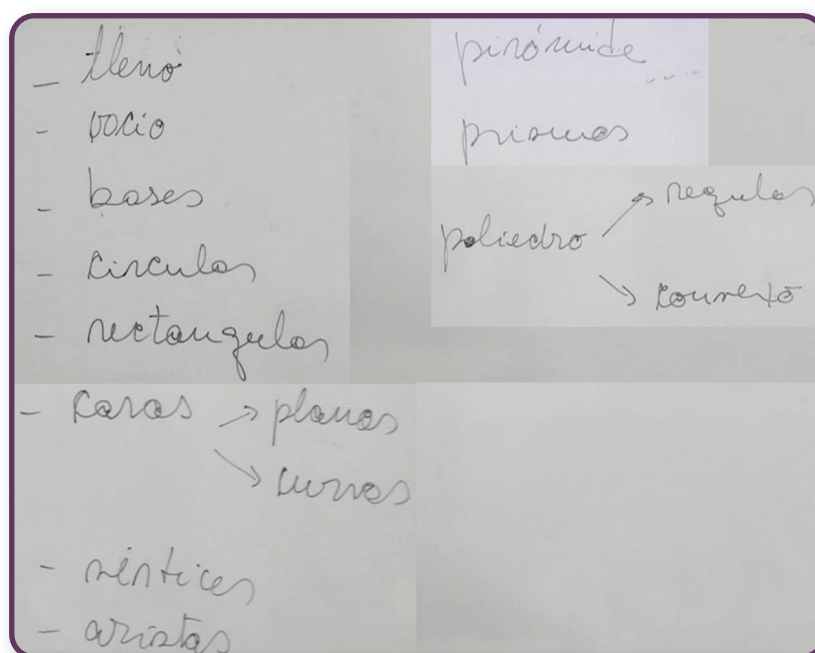 - lleno
- vacio
- bases
- circulos
- rectangulos
- caras → planas
→ curvas
- vértices
- aristas
pirámide
prismas
poliedro → regular
→ convexo